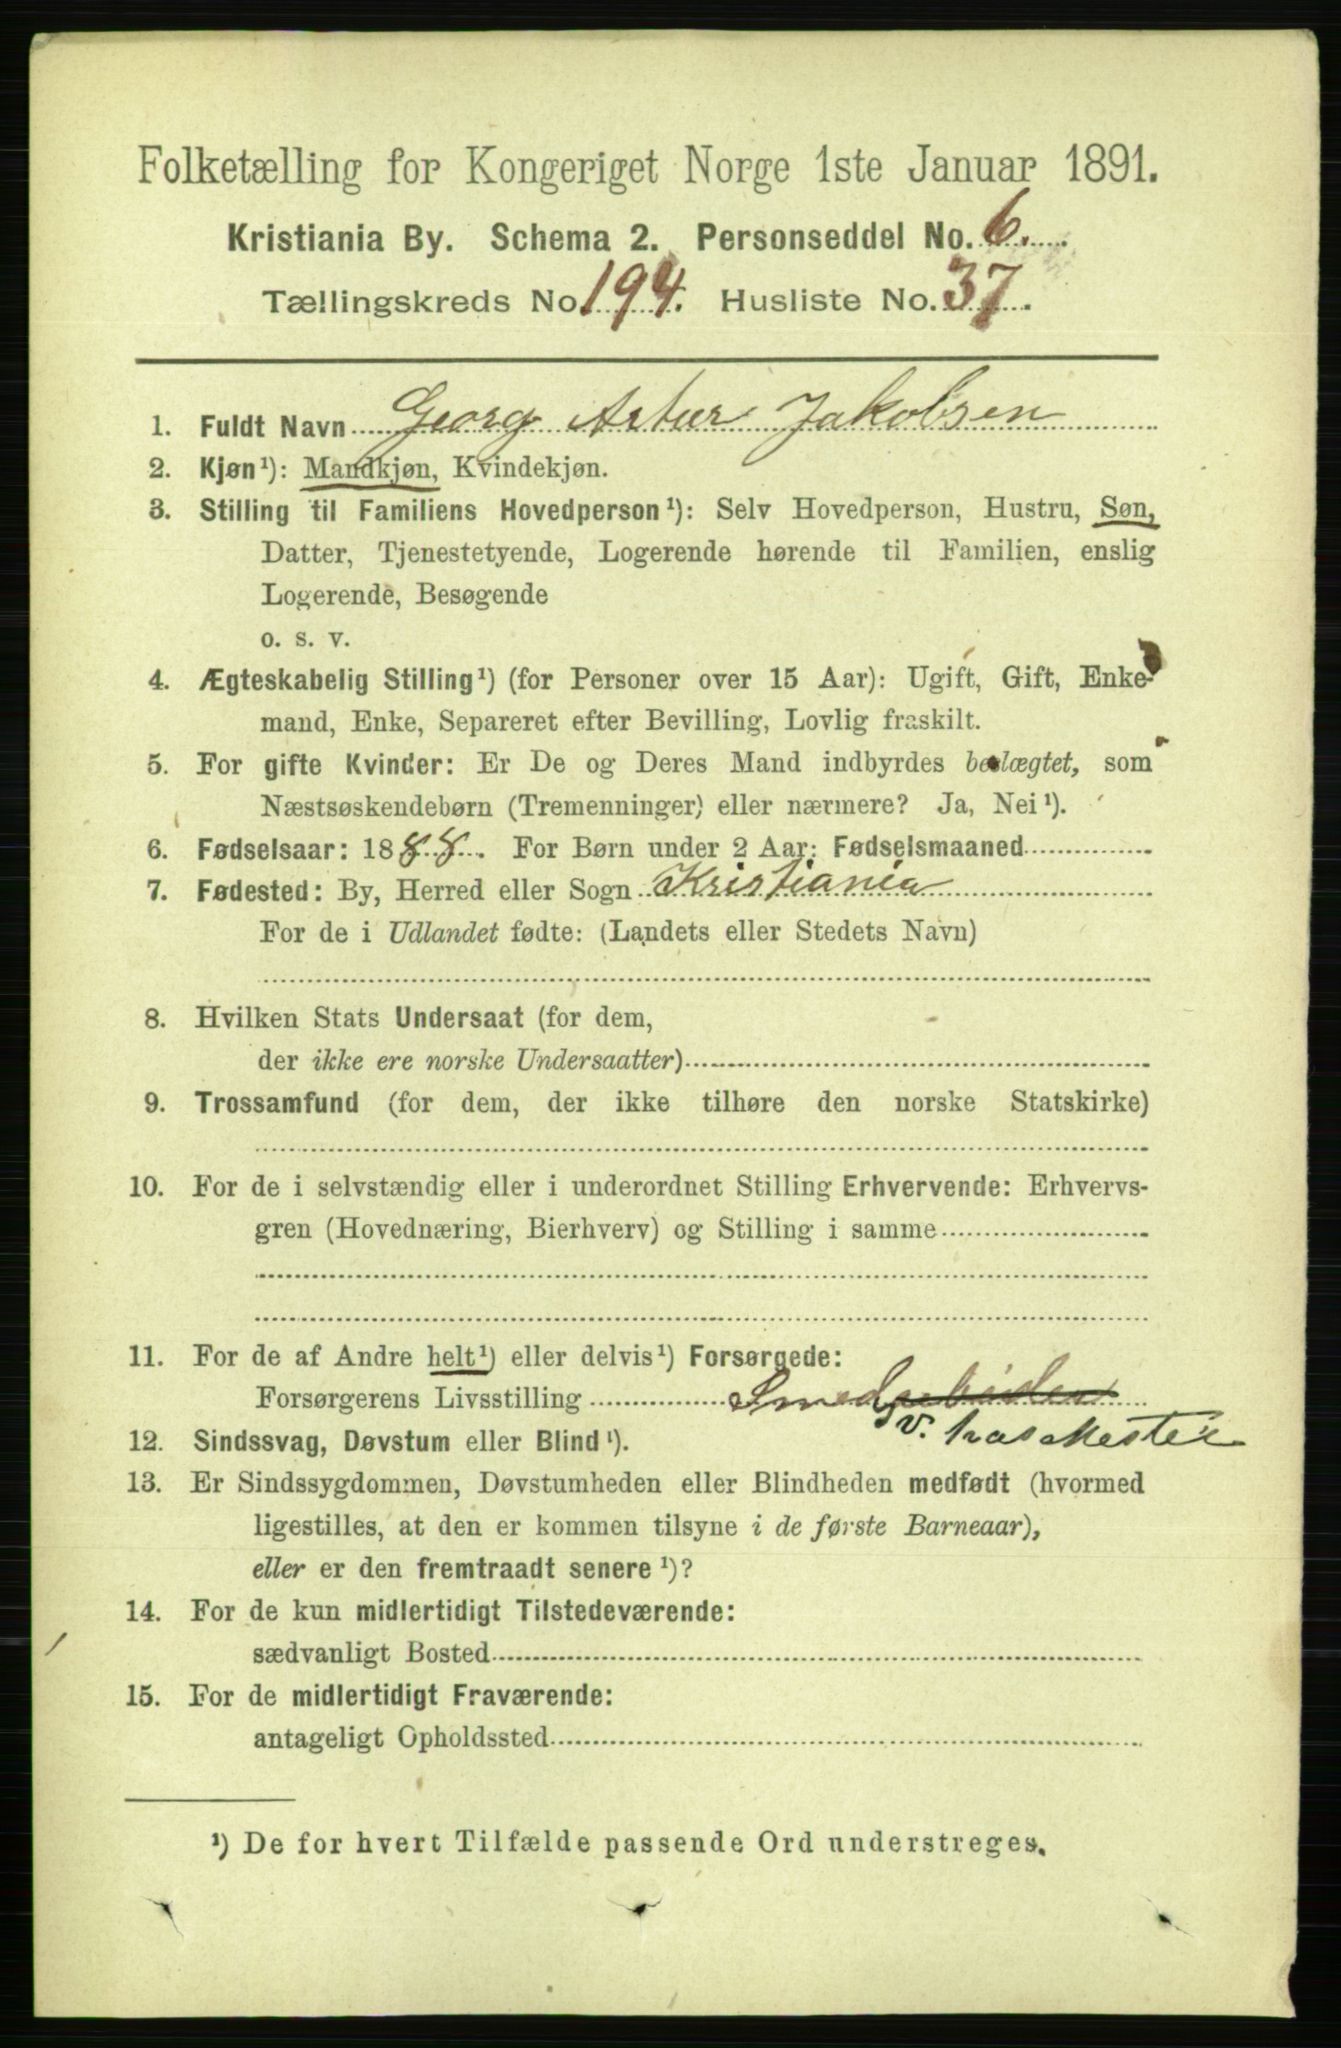 Folketælling for Kongeriget Norge 1ste Januar 1891.
Kristiania By. Schema 2. Personseddel No. 6.
Tællingskreds No 194. Husliste No. 37.
1. Fuldt Navn Georg Artur Jakobsen
2. Kjøn¹): Mandkjøn, Kvindekjøn.
3. Stilling til Familiens Hovedperson¹): Selv Hovedperson, Hustru, Søn,
Datter, Tjenestetyende, Logerende hørende til Familien, enslig
Logerende, Besøgende
o. s. v.
4. Ægteskabelig Stilling¹) (for Personer over 15 Aar): Ugift, Gift, Enke-
mand, Enke, Separeret efter Bevilling, Lovlig fraskilt.
5. For gifte Kvinder: Er De og Deres Mand indbyrdes beslægtet, som
Næstsøskendebørn (Tremenninger) eller nærmere? Ja, Nei¹).
6. Fødselsaar: 1888. For Børn under 2 Aar: Fødselsmaaned
7. Fødested: By, Herred eller Sogn Kristiania
For de i Udlandet fødte: (Landets eller Stedets Navn)
8. Hvilken Stats Undersaat (for dem,
der ikke ere norske Undersaatter)
9. Trossamfund (for dem, der ikke tilhøre den norske Statskirke)
10. For de i selvstændig eller i underordnet Stilling Erhvervende: Erhvervs-
gren (Hovednæring, Bierhverv) og Stilling i samme
11. For de af Andre helt¹) eller delvis¹) Forsørgede:
Forsørgerens Livsstilling Smed
v.
12. Sindssvag, Døvstum eller Blind¹).
13. Er Sindssygdommen, Døvstumheden eller Blindheden medfødt (hvormed
ligestilles, at den er kommen tilsyne i de første Barneaar),
eller er den fremtraadt senere¹)?
14. For de kun midlertidigt Tilstedeværende:
sædvanligt Bosted
15. For de midlertidigt Fraværende:
antageligt Opholdssted
¹) De for hvert Tilfælde passende Ord understreges.